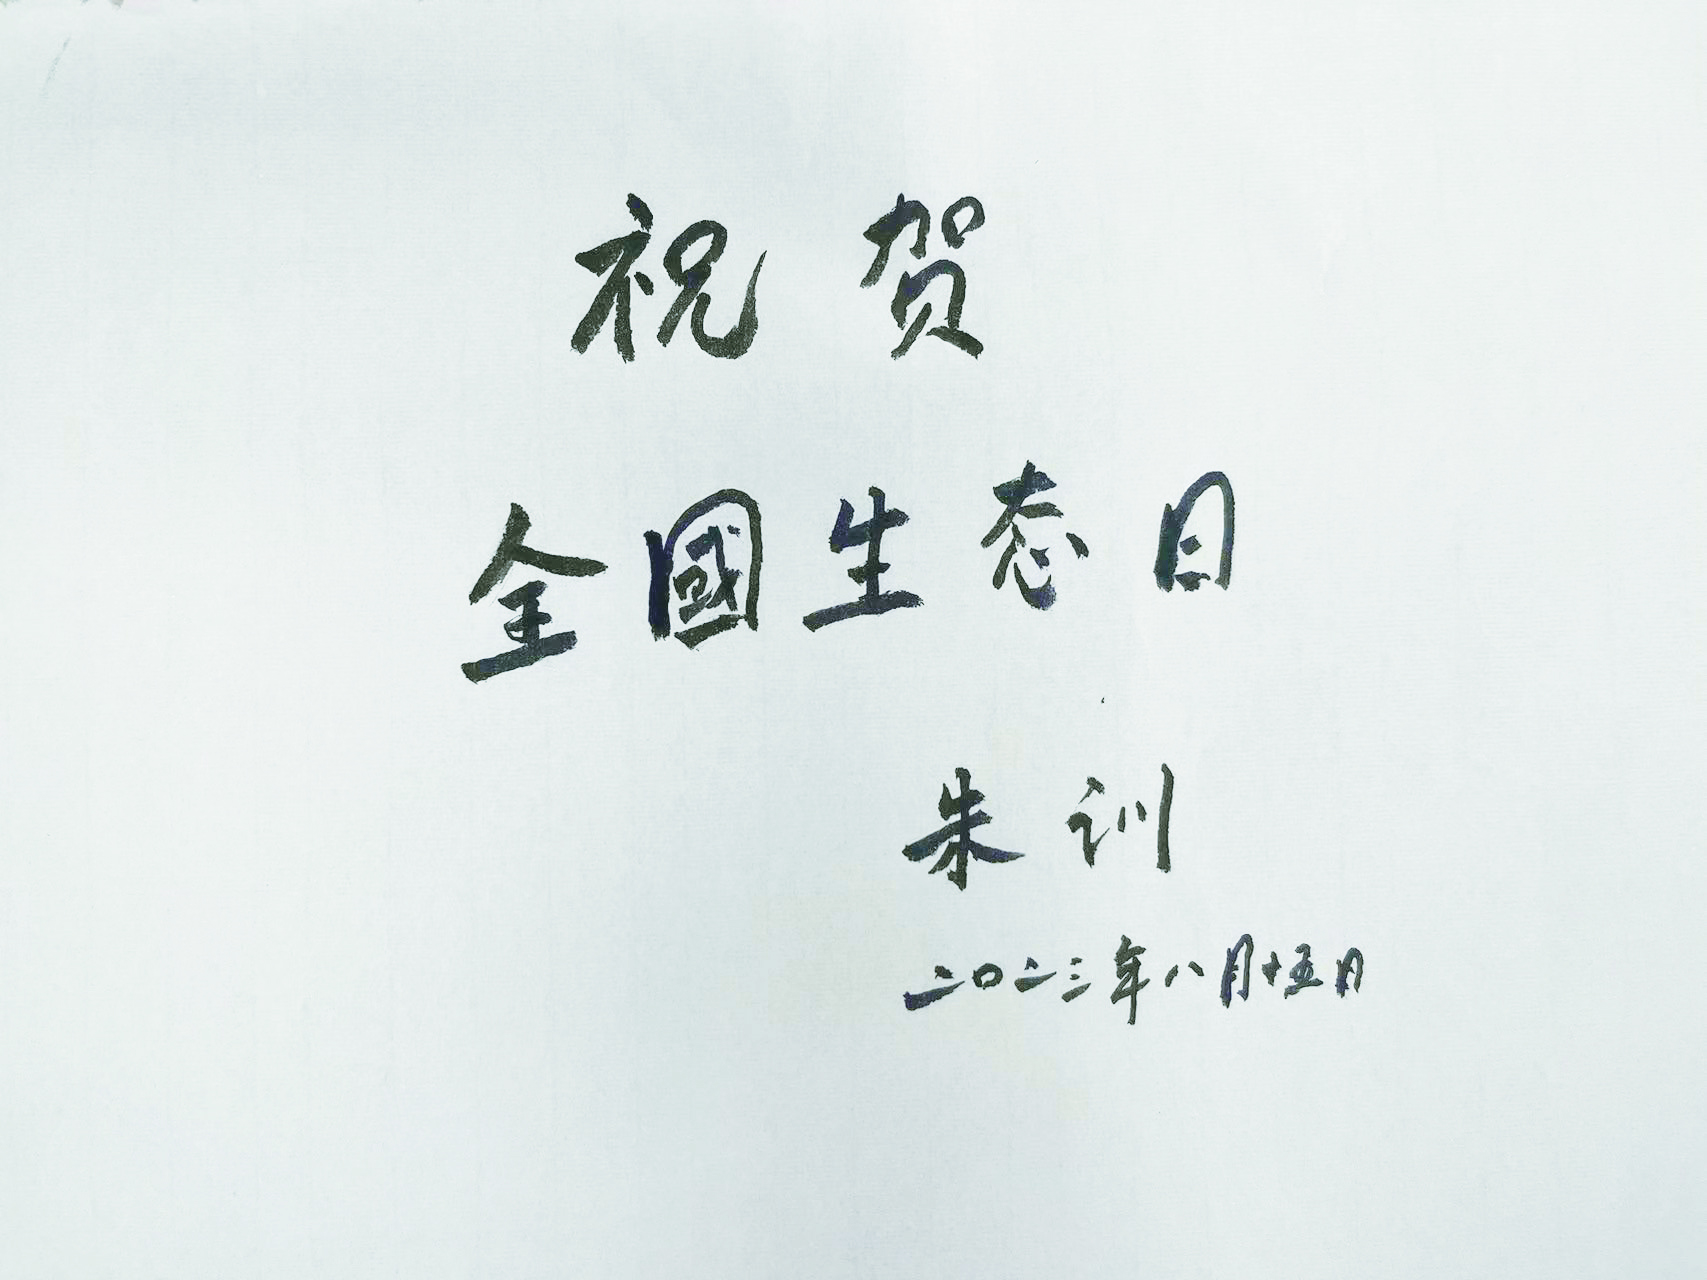 祝贺
全國生态日
朱训
二〇二三年八月十五日